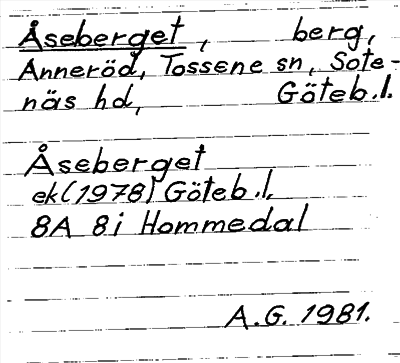 Åseberget, berg,
Anneröd, Tossene sn, Sote-
näs hd, Göteb.l.
Åseberget
ek(1978) Göteb.l.
8A 8i Hommedal
A.G. 1981.